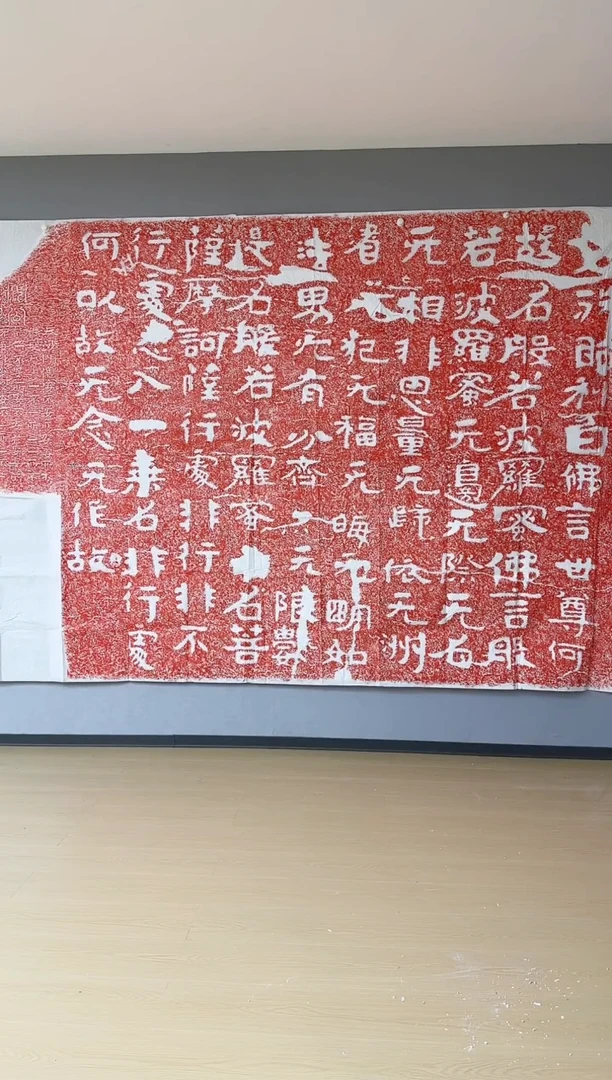 文殊師利白佛言世尊何
故名般若波羅蜜佛言般
若波羅蜜无邊无際无名
无相非思量无歸依无洲
渚无犯无福无晦无明如
法界无有分齊亦无限數
是名般若波羅蜜亦名菩
薩摩訶薩行處非行非不
行處悉入一乘名非行處
何以故无念无作故